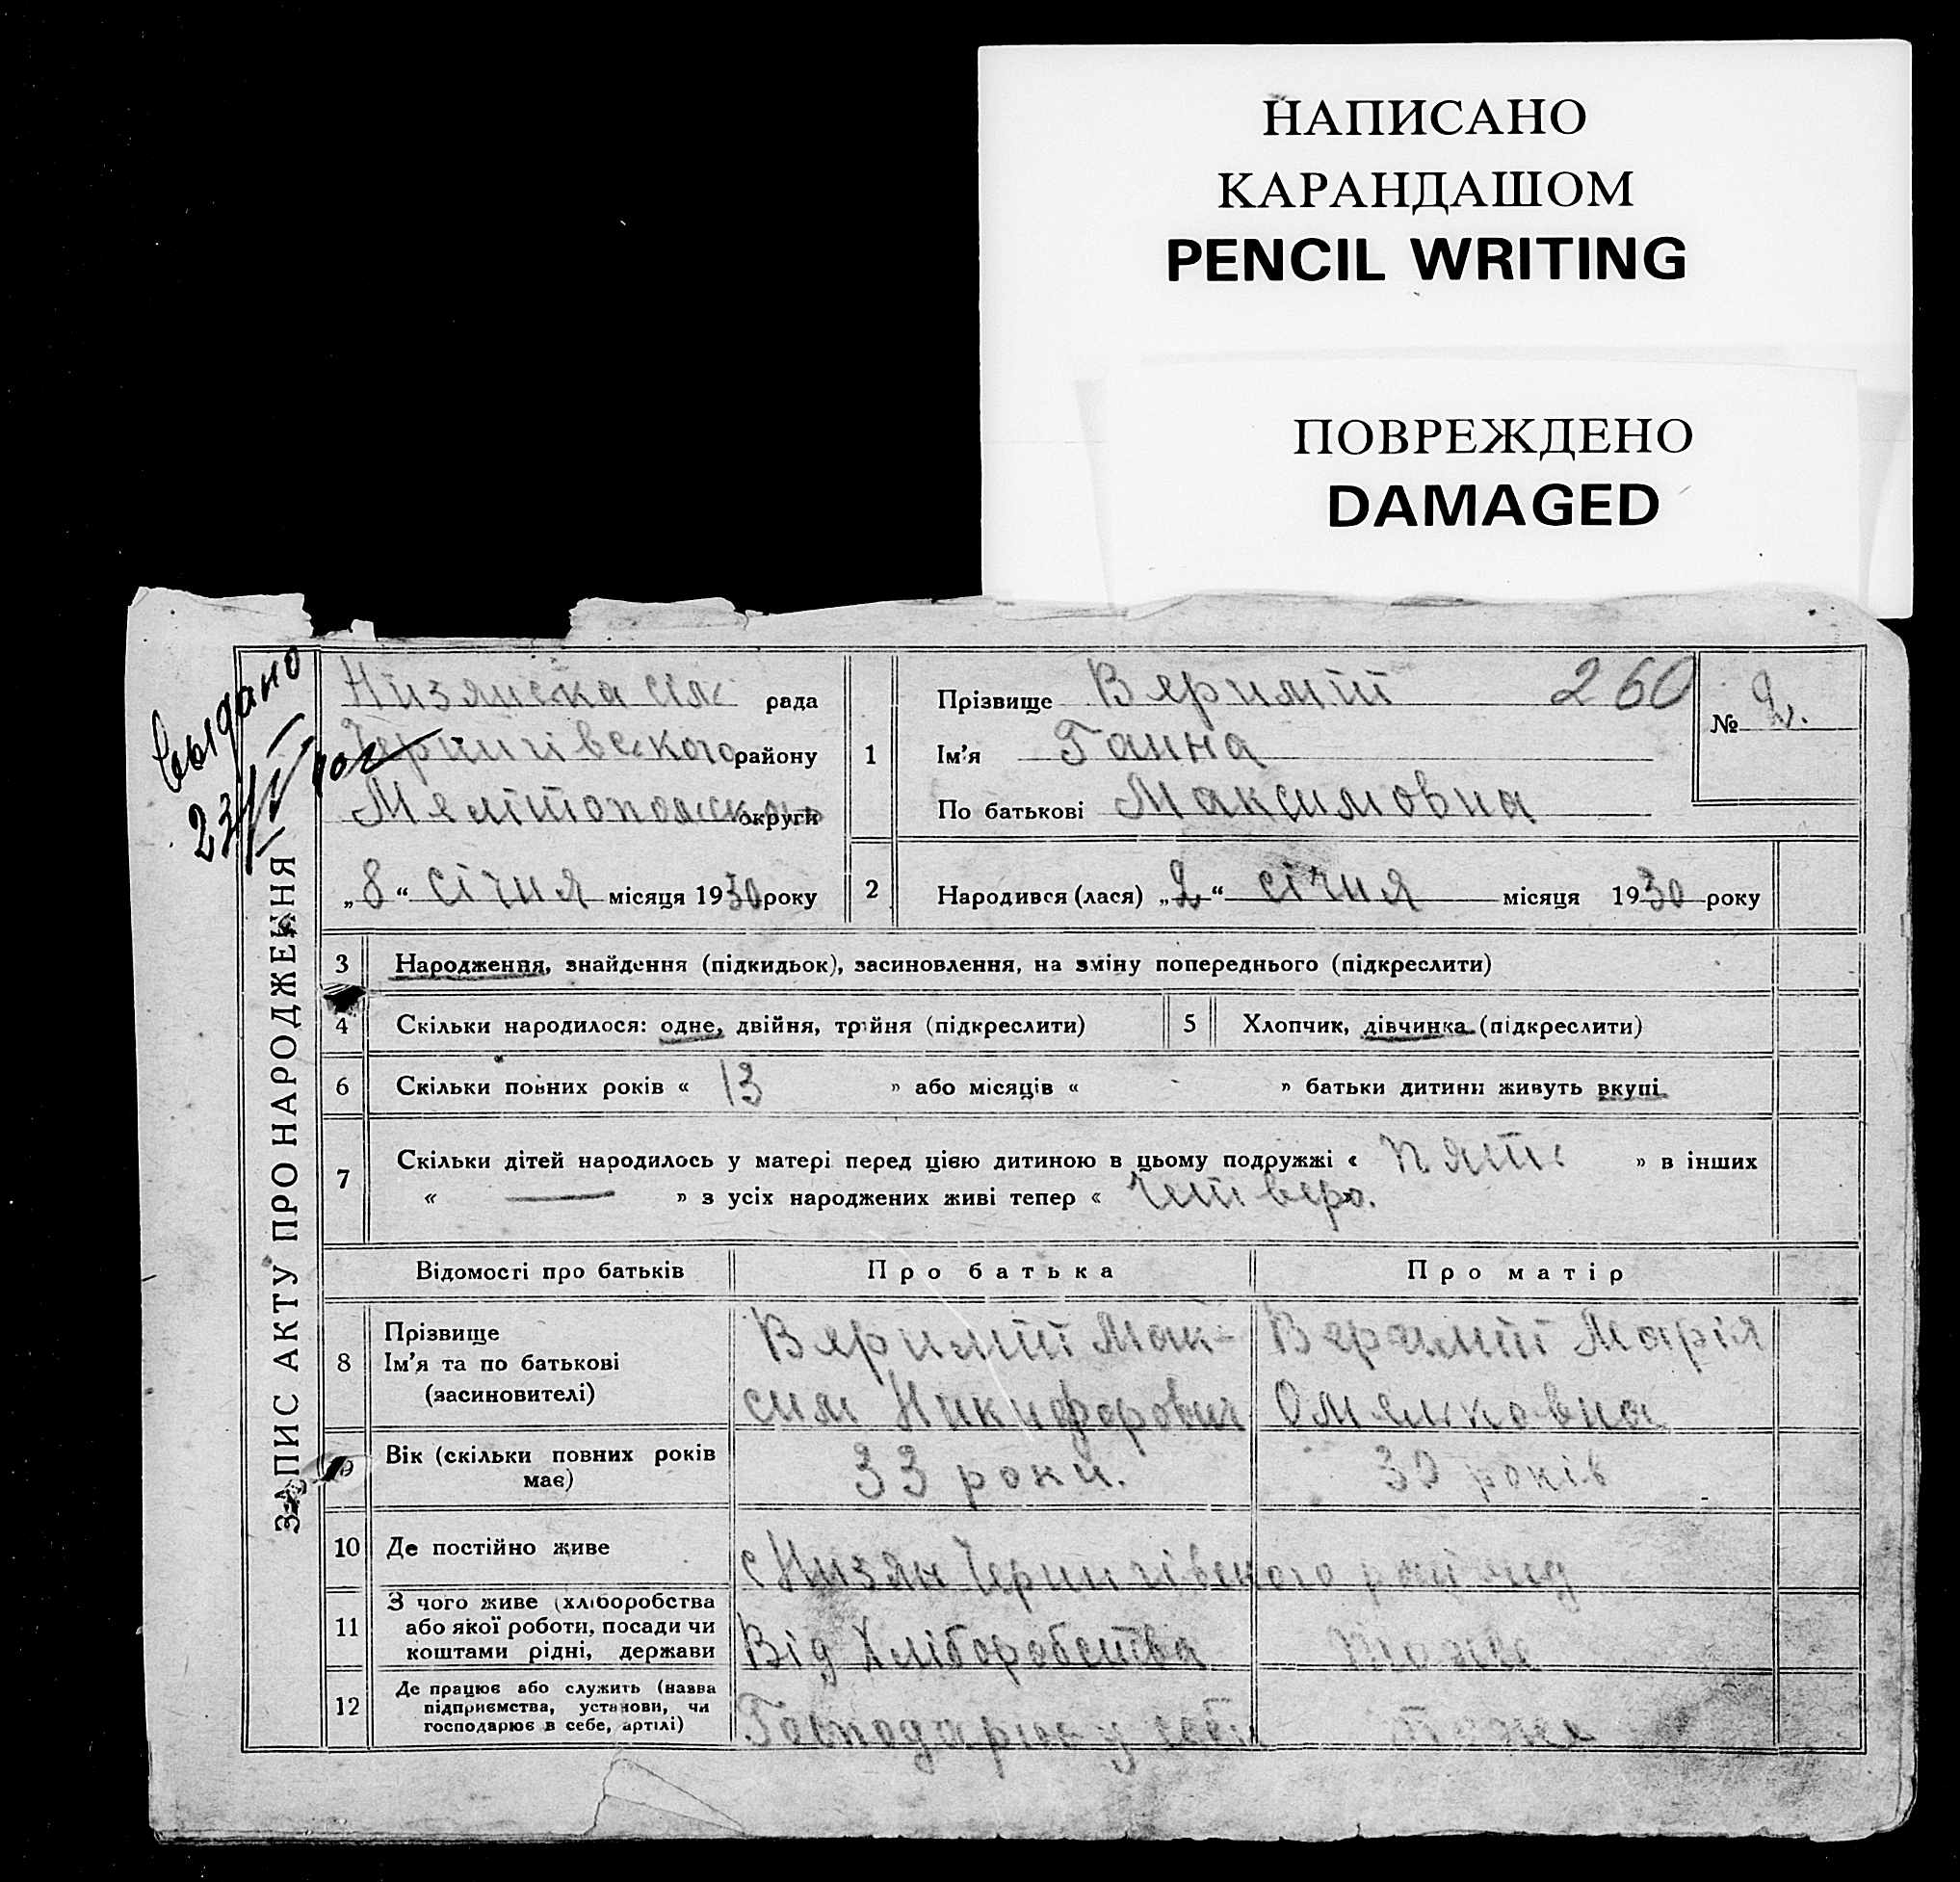 НАПИСАНО
КАРАНДАШОМ
PENCIL WRITING
ПОВРЕЖДЕНО
DAMAGED
Выдано
23/IV 40г
ЗАПИС АКТУ ПРО НАРОДЖЕННЯ
Низянска сіль рада
Чернигівского району
Мелітопольского округи
„8“ січня місяця 1930 року
1
Прізвище Веримій 260
Ім'я Ганна
По батькові Максимовна
№ 2.
2 Народився (лася) „2“ січня місяця 1930 року
3 Народження, знайдення (підкидьок), засиновлення, на зміну попереднього (підкреслити)
4 Скільки народилося: одне, двійня, трійня (підкреслити)
5 Хлопчик, дівчинка (підкреслити)
6 Скільки повних років « 13 » або місяців « - » батьки дитини живуть вкупі
7 Скільки дітей народилось у матері перед цією дитиною в цьому подружжі « пять » в інших
« — » з усіх народжених живі тепер « четверо. »
Відомості про батьків Про батька Про матір
8 Прізвище
Ім'я та по батькові
(засиновителі)
Веримій Мак-
сим Никифорович
Веремій Марія
Омельковна
9 Вік (скільки повних років
має)
33 роки.
30 років
10 Де постійно живе
с Низян Чернигівского району
11 З чого живе (хліборобства
або якої роботи, посади чи
коштами рідні, держави
Від Хліборобства
тоже
12 Де працює або служить (назва
підприємства, установи, чи
господарює в себе, артілі)
Господарює у себе
тоже